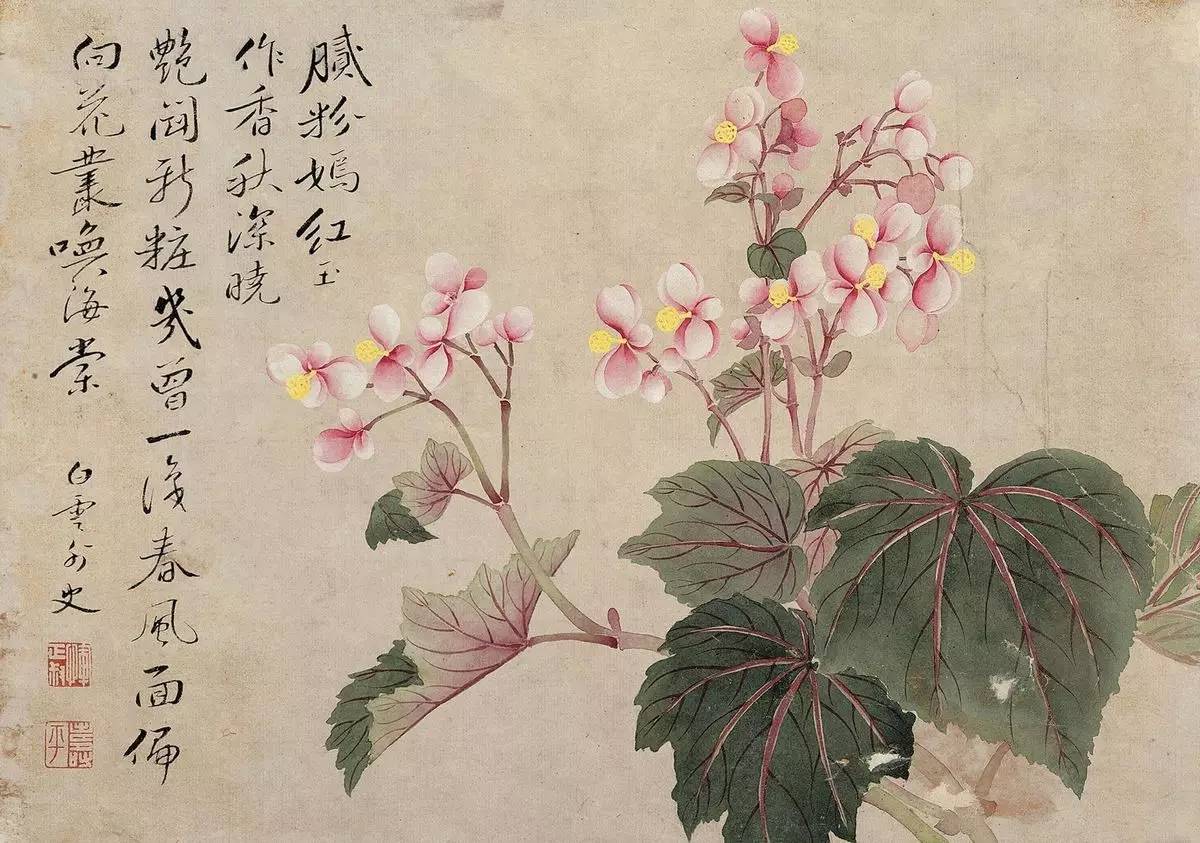 膩粉嫣紅玉
作香秋深曉
艷鬪新粧幾曾一識春風面偏
向花叢喚海棠
白雲外史
惲正叔
壽平